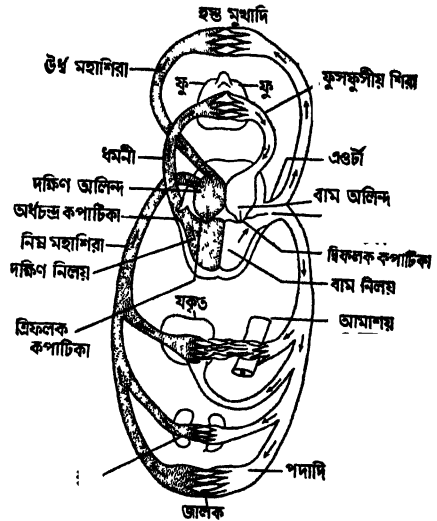 হস্ত মুখাদি
ঊর্ধ্ব মহাশিরা
ফু ফু
ফুসফুসীয় শিরা
ধমনী
এওর্টা
দক্ষিণ অলিন্দ
বাম অলিন্দ
অর্ধচন্দ্র কপাটিকা
নিম্ন মহাশিরা
দ্বিফলক কপাটিকা
দক্ষিণ নিলয়
বাম নিলয়
যকৃত
ত্রিফলক
কপাটিকা
আমাশয়
পদাদি
জালক